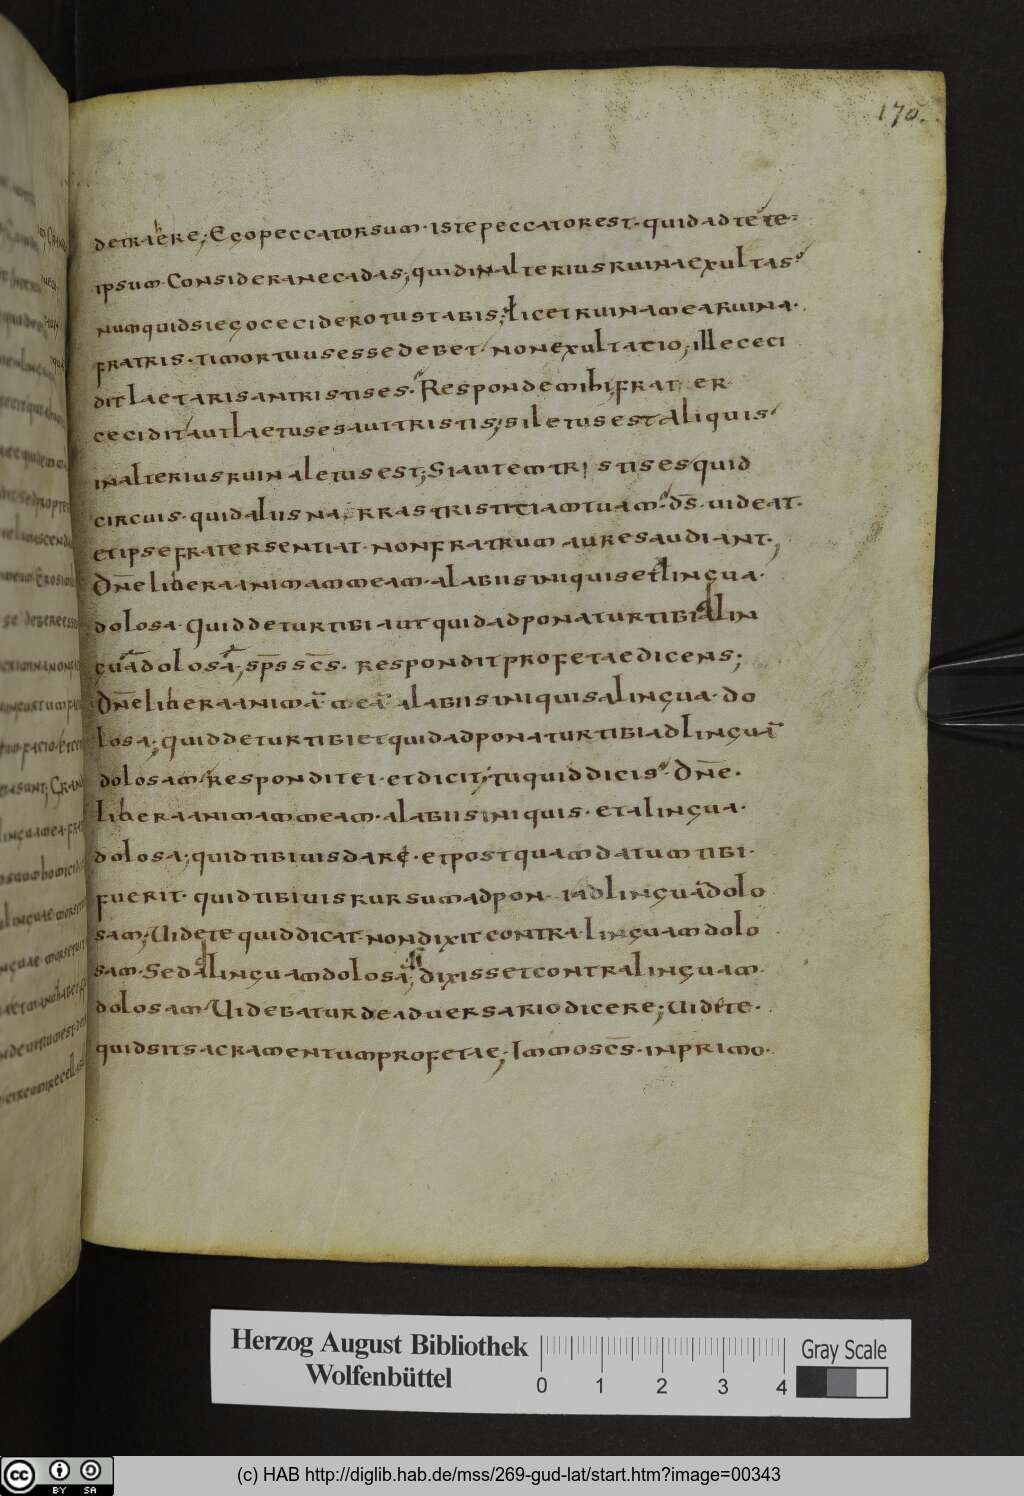 170.
detrahere; Ego peccator sum· iste peccator est· quid ad te te
ipsum· Considera ne cadas; quid in alterius ruina exultas
numquid si ego cecidero tu stabis; licet ruina mea ruina·
fratris· ti mortuus esse debet· non exultatio; ille ceci
dit laetaris an tristis es· Responde mihi; frat er
cecidit aut laetus es aut tristis; si letus est aliquis
in alterius ruin a letus est; Si autem tri stis es quid
circuis· quid aliis narras tristitiam tuam· d̄s· uideat·
et ipse frater sentiat· non fratrum aures audiant·
Dn̄e libera animam meam· a labiis iniquis et lingua·
dolosa· Quid detur tibi aut quid adponatur tibi a lin
gua dolosa; sp̄s sc̄s· respondit profetae dicens;
Dn̄e libera animā meā a labiis iniquis a lingua· do
losa; quid detur tibi et quid adponatur tibi ad linguā
dolosam· respondit ei· et dicit; tu quid dicis· Dn̄e·
Libera animam meam· a labiis iniquis· et a lingua·
dolosa; quid tibi uis dare· et postquam datum tibi·
fuerit· quid tibi uis rursum adpon i ad linguā dolo
sam; Uidete quid dicat· non dixit contra· linguam dolo
sam· Sed a linguam dolosa; dixisset contra linguam·
dolosam· Uidebatur de aduersario dicere; uidete·
quid sit sacramentum profetae; Immo sc̄s· in primo·
Herzog August Bibliothek
Wolfenbüttel
0 1 2 3 4
Gray Scale
cc BY SA
(c) HAB http://diglib.hab.de/mss/269-gud-lat/start.htm?image=00343